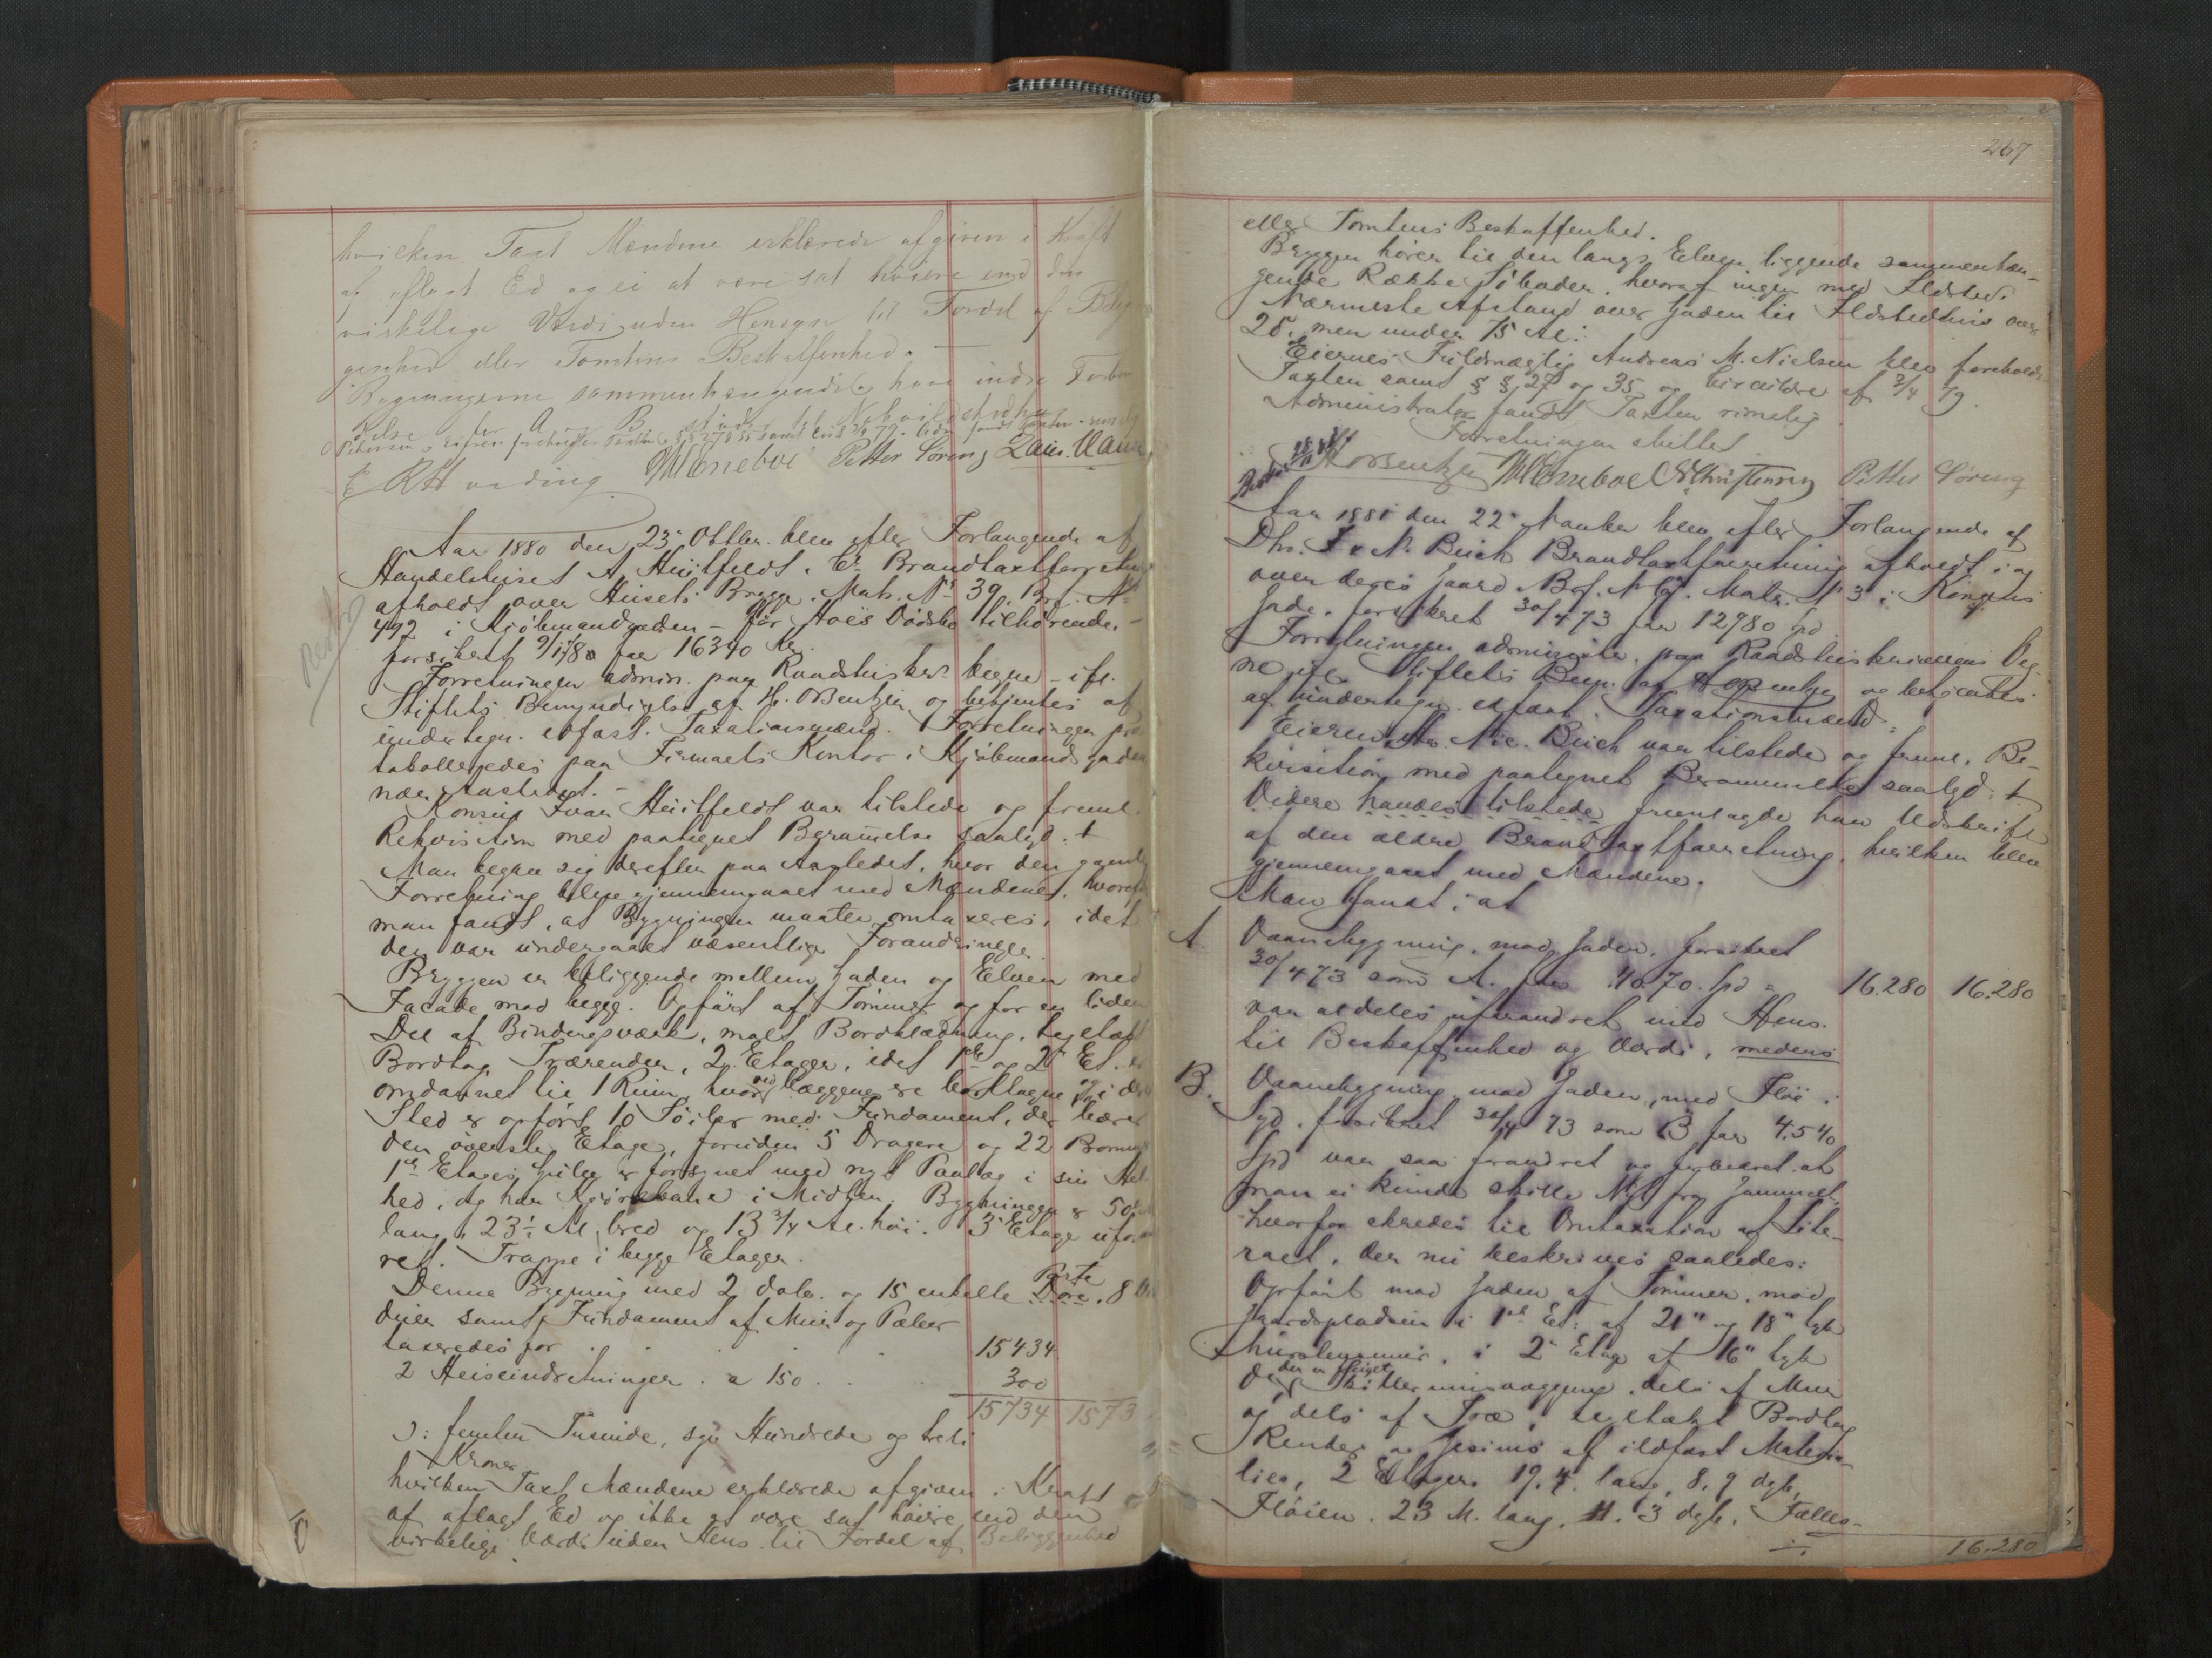 hvilken Taxt Mændene erklærede afgiven i Kraft
af aflagt Ed og ei at være sat høiere end den
virkelige Værdi uden Hensyn til Fordel af Belig
genhed eller Tomtens Beskaffenhed.
Bygningerne sammenhængende have indre Forbin
delse
Aar 1880 den 23 Oktbr. blev efter Forlangende af
Handelshuset A. Huitfeldt & Co Brandtaxtforretning
afholdt over Husets Brygge. Matr. No 39. Brf. No
492 i Kjøbmandgaden - før Høes Dødsbo tilhørende. -
forsikret 9/1 78 for 16340 Kr.
Forretningen admin. paa Raadstuskr. vegne - ifl.
Stiftets Bemyndigelse af H. Bentzen og betjentes af
undertegn. edfast. Taxationsmænd. Forretningen pro
tokolleredes paa Firmaets Kontor i Kjøbmandsgaden
nær Aastedet. -
Konsul Ivar Huitfeldt var tilstede og freml.
Rekvisition med paategnet Berammelse saalyd. +
Man begav sig derefter paa Aastedet, hvor den gamle
Forretning blev gjennemgaaet med Mændene, hvoref
man fandt, at Bygningen maatte omtaxeres, idet
den var undergaaet væsentlige Forandringer.
Bryggen er beliggende mellem Gaden og Elven med
Facade mod begge. Opført af Tømmer og for en liden
Del af Bindingsværk, malt Bordklædning, teglsat
Bordtag, Trærender, 2 Etager, idet 1ste og 2de Et. er
omdannet til 1 Rum, hvorved Væggene ere borttagne og i det
Sted er opført 10 Søiler med Fundament, der bærer
den øverste Etage, foruden 5 Dragere og 22
1ste Etages Gulv er forsynet med nyt Paalæg i sin Hel
hed, og har Kjørebane i Midten. Bygningen er 50
lang, 23 1/2 Al. bred og 13 3/4 Al. høi. 3 Etage
ret. Trappe i begge Etager.
Denne Bygning med 2 dobb. og 15 enkelte Porte Døre, 8
duer samt Fundament af Mur og Pæler
taxeredes for . . . . . 15434
2 Heiseindretninger . a 150 . . 300
15734 1573
ɔ: femten Tusinde, syv Hundrede og treti
Kroner
hvilken Taxt Mændene erklærede afgiven i Kraft
af aflagt Ed og ikke at være sat høiere end den
virkelige Værdi uden Hens. til Fordel af Beliggenhed
267
eller Tomtens Beskaffenhed.
Bryggen hører til den langs Elven liggende sammenhæn-
gende Række Søboder, hvoraf ingen med Ildsted.
Nærmeste Afstand over Gaden til Ildstedhus over
25 men under 75 Al.
Eiernes Fuldmægtig Andreas M. Nielsen blev foreholdt
Taxten samt §§ 27 og 35 og Circulære af 2/4 79.
Administrator fandt Taxten rimelig
Forretningen sluttet
Petter Søreng
Aar 1881 den 22 blev efter Forlangende af
Dhr. F & N. Buck Brandtaxtforretning afholdt i og
over deres Gaard Brf. No 67. Matr. No 3 i Kongens
Gade, forsikret 30/4 73 for 12980 Spd.
Forretningen administr. paa Raadstuskriverens Veg-
ne ifl. Stiftets Bem. af og betjentes
af undertegn. edfast. Taxationsmænd.
Eieren Hr. Nic. Buck var tilstede og freml. Re-
kvisition med paategnet Berammelse saalyd: +
Videre havdes tilstede fremlagde han Udskrift
af den ældre Brandtaxtforretning, hvilken blev
gjennemgaaet med Mændene.
Man fandt: at
A. Vaaningsbygning, mod Gaden, forsikret
30/4 73 som A. for 4070 Spd = 16.280 16.280
var aldeles uforandret med Hens.
til Beskaffenhed og Værdi, medens
B. Vaaningsbygning mod Gaden, med Fløi i
Syd, forsikret 30/4 73 som B for 4540
Spd var saa forandret og forbedret at
man ei kunde skille Nyt fra Gammelt,
hvorfor skredes til Omtaxation af Lite-
raet, der nu beskrives saaledes:
Opført mod Gaden af Tømmer, mod
Gaardspladsen i 1ste Et. af 21" og 18" tyk
i 2 Etage af 16" tyk
dels af Mur
og dels af Træ, teglsat Bordtag
Render og Gesims af ildfast Materia-
lier, 2 Etager. 19.4 lang, 8.9 dyb,
Fløien. 23 M. lang, 11.3 dyb. Fælles-
16.280